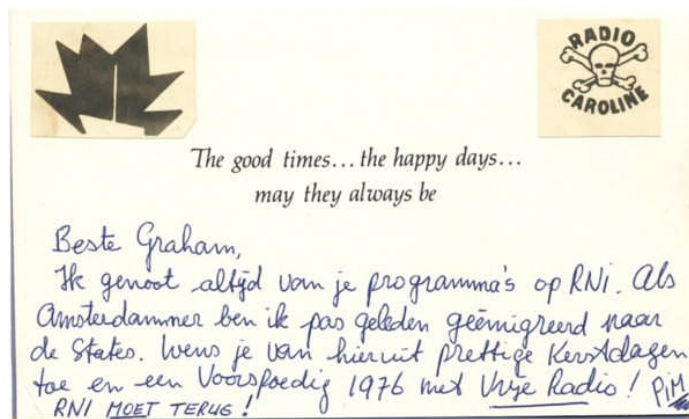 RADIO
CAROLINE
The good times... the happy days...
may they always be
Beste Graham,
Ik genoot altijd van je programma's op RNI. Als
Amsterdammer ben ik pas geleden geëmigreerd naar
de States. Wens je van hieruit prettige Kerstdagen
toe en een Voorspoedig 1976 met Vrije Radio! PiM
RNI MOET TERUG!